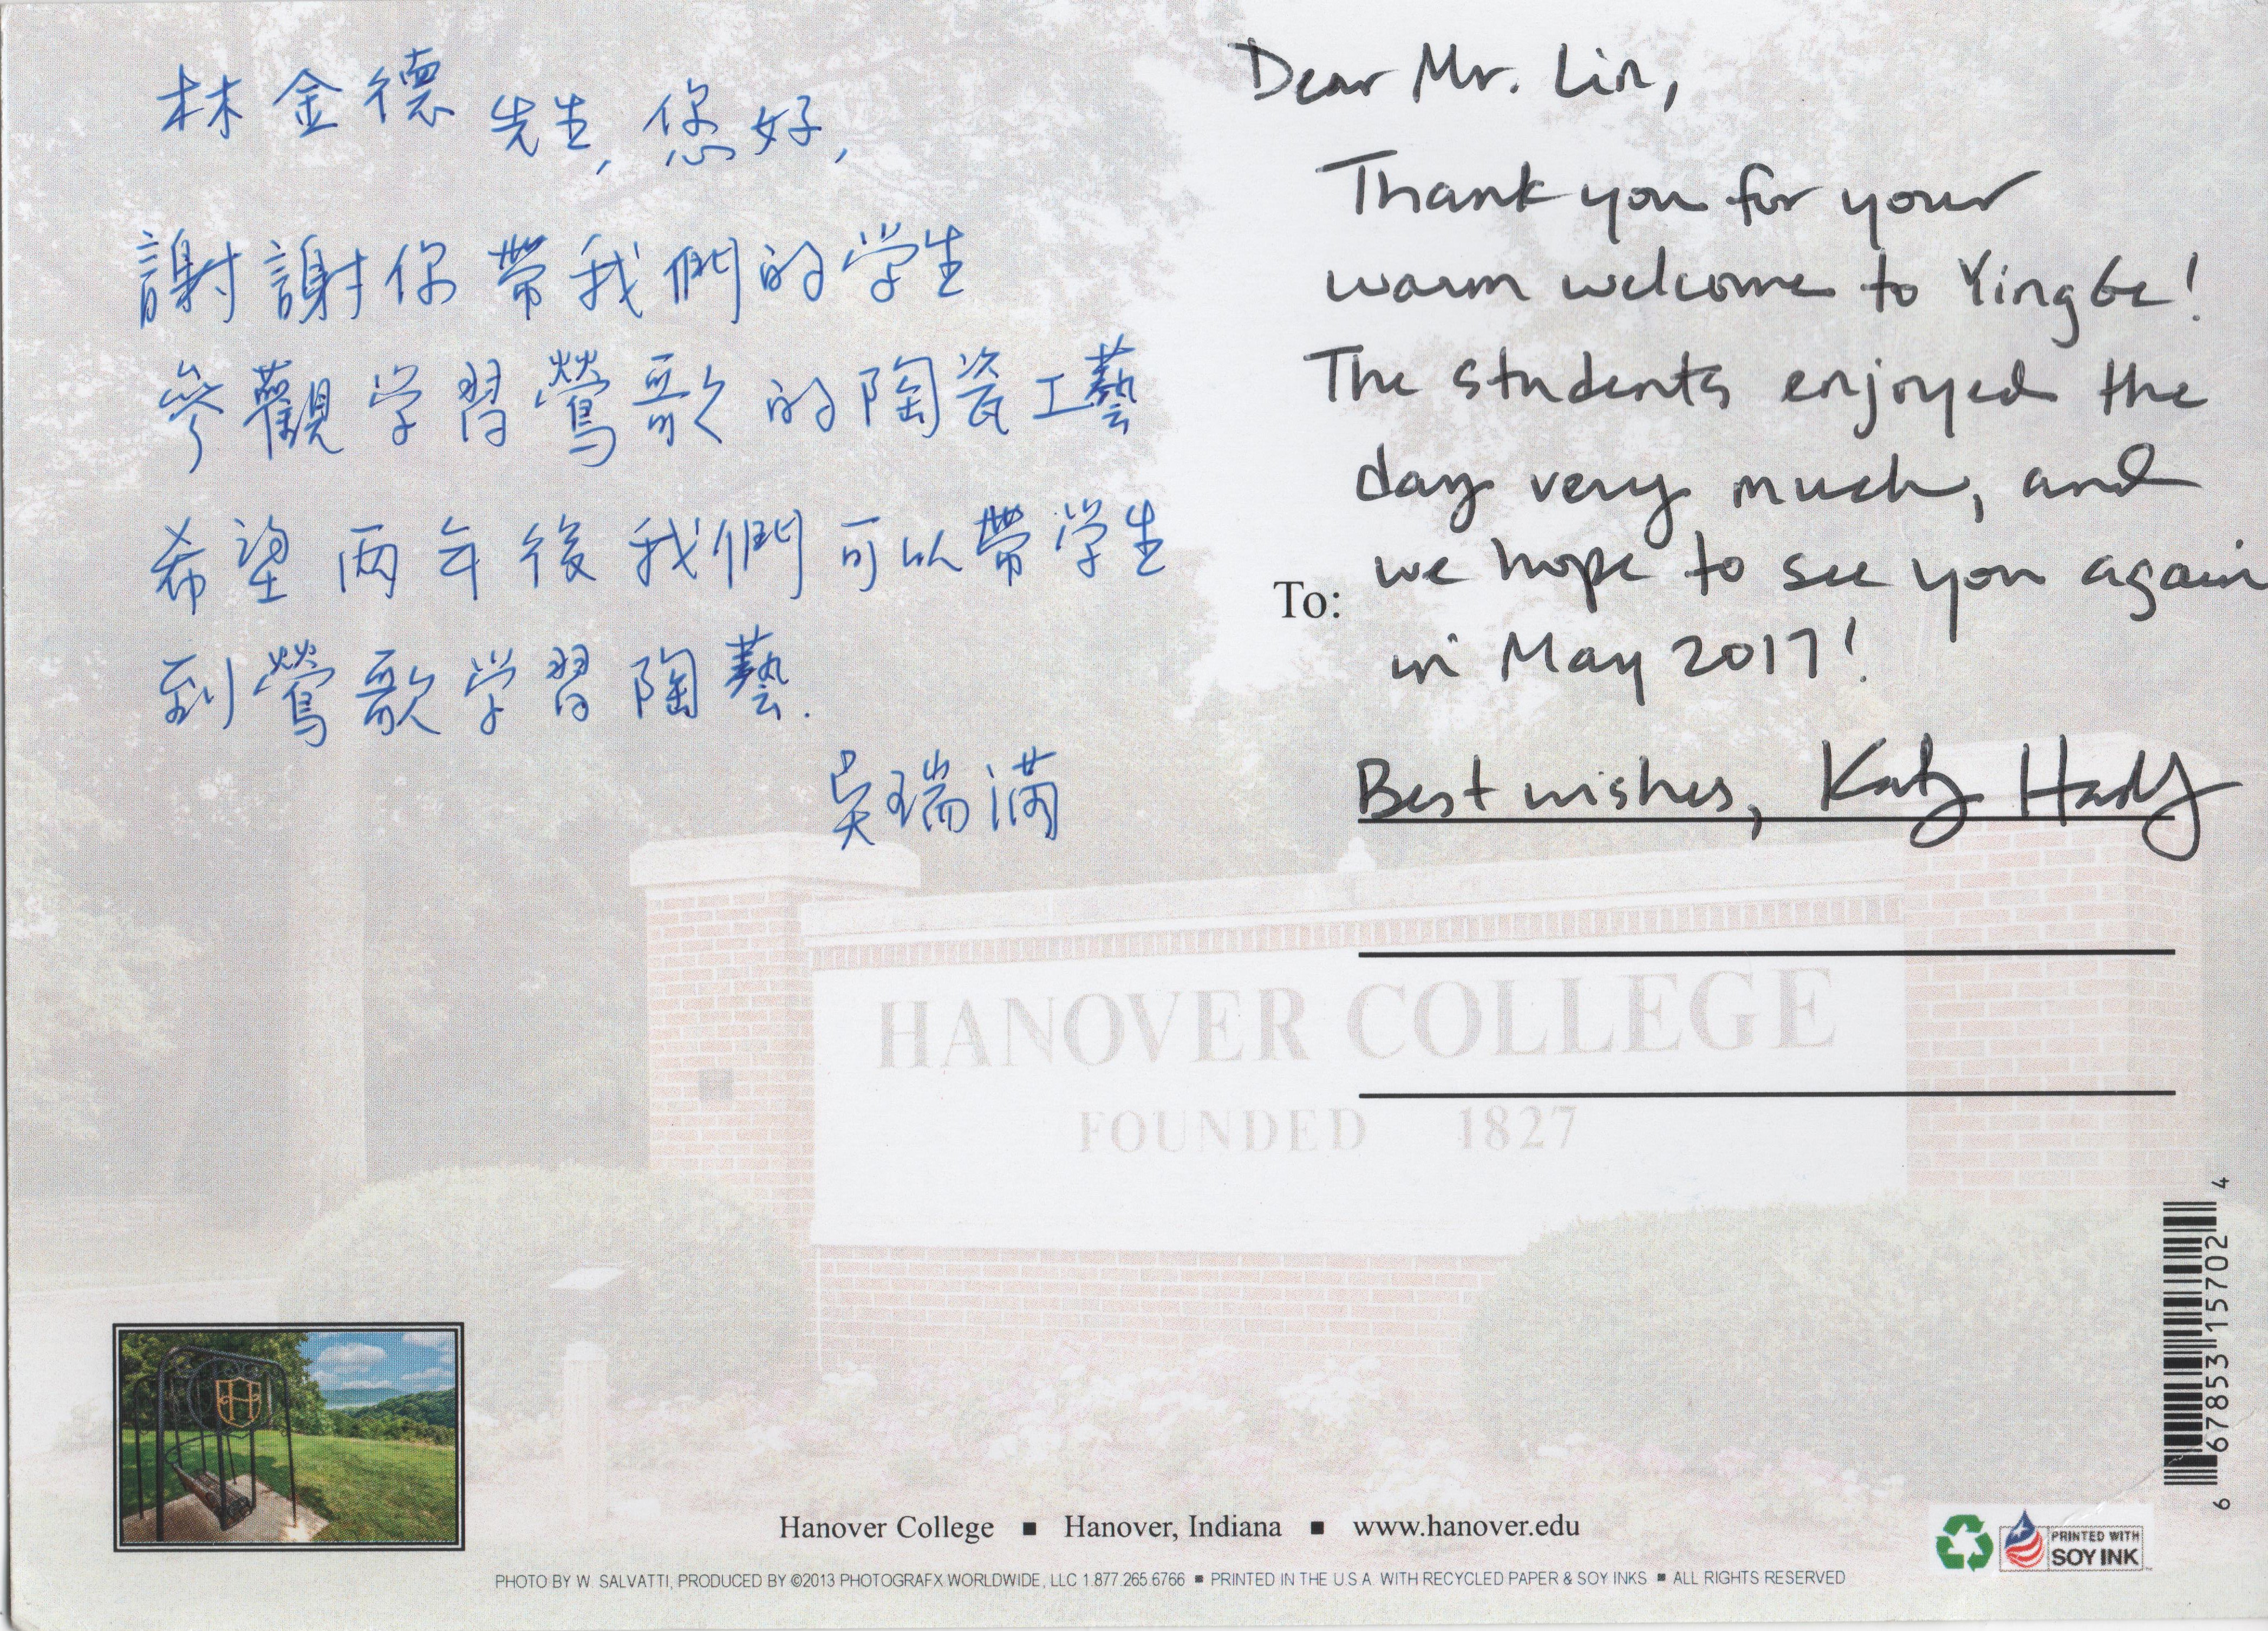 林金德先生,您好,
謝謝你帶我們的学生
參觀学習鶯歌的陶瓷工藝
希望两年後我們可以帶学生
到鶯歌学習陶藝.
吴瑞满
Dear Mr. Lin,
Thank you for your
warm welcome to Yingge!
The students enjoyed the
day very much, and
we hope to see you again
in May 2017!
Best wishes, Katy Hadley
To:
HANOVER COLLEGE
FOUNDED 1827
H
Hanover College ▪ Hanover, Indiana ▪ www.hanover.edu
PHOTO BY W. SALVATTI, PRODUCED BY ©2013 PHOTOGRAFX WORLDWIDE, LLC 1.877.265.6766 ▪ PRINTED IN THE U.S.A. WITH RECYCLED PAPER & SOY INKS ▪ ALL RIGHTS RESERVED
6 67853 15702 4
PRINTED WITH
SOY INK